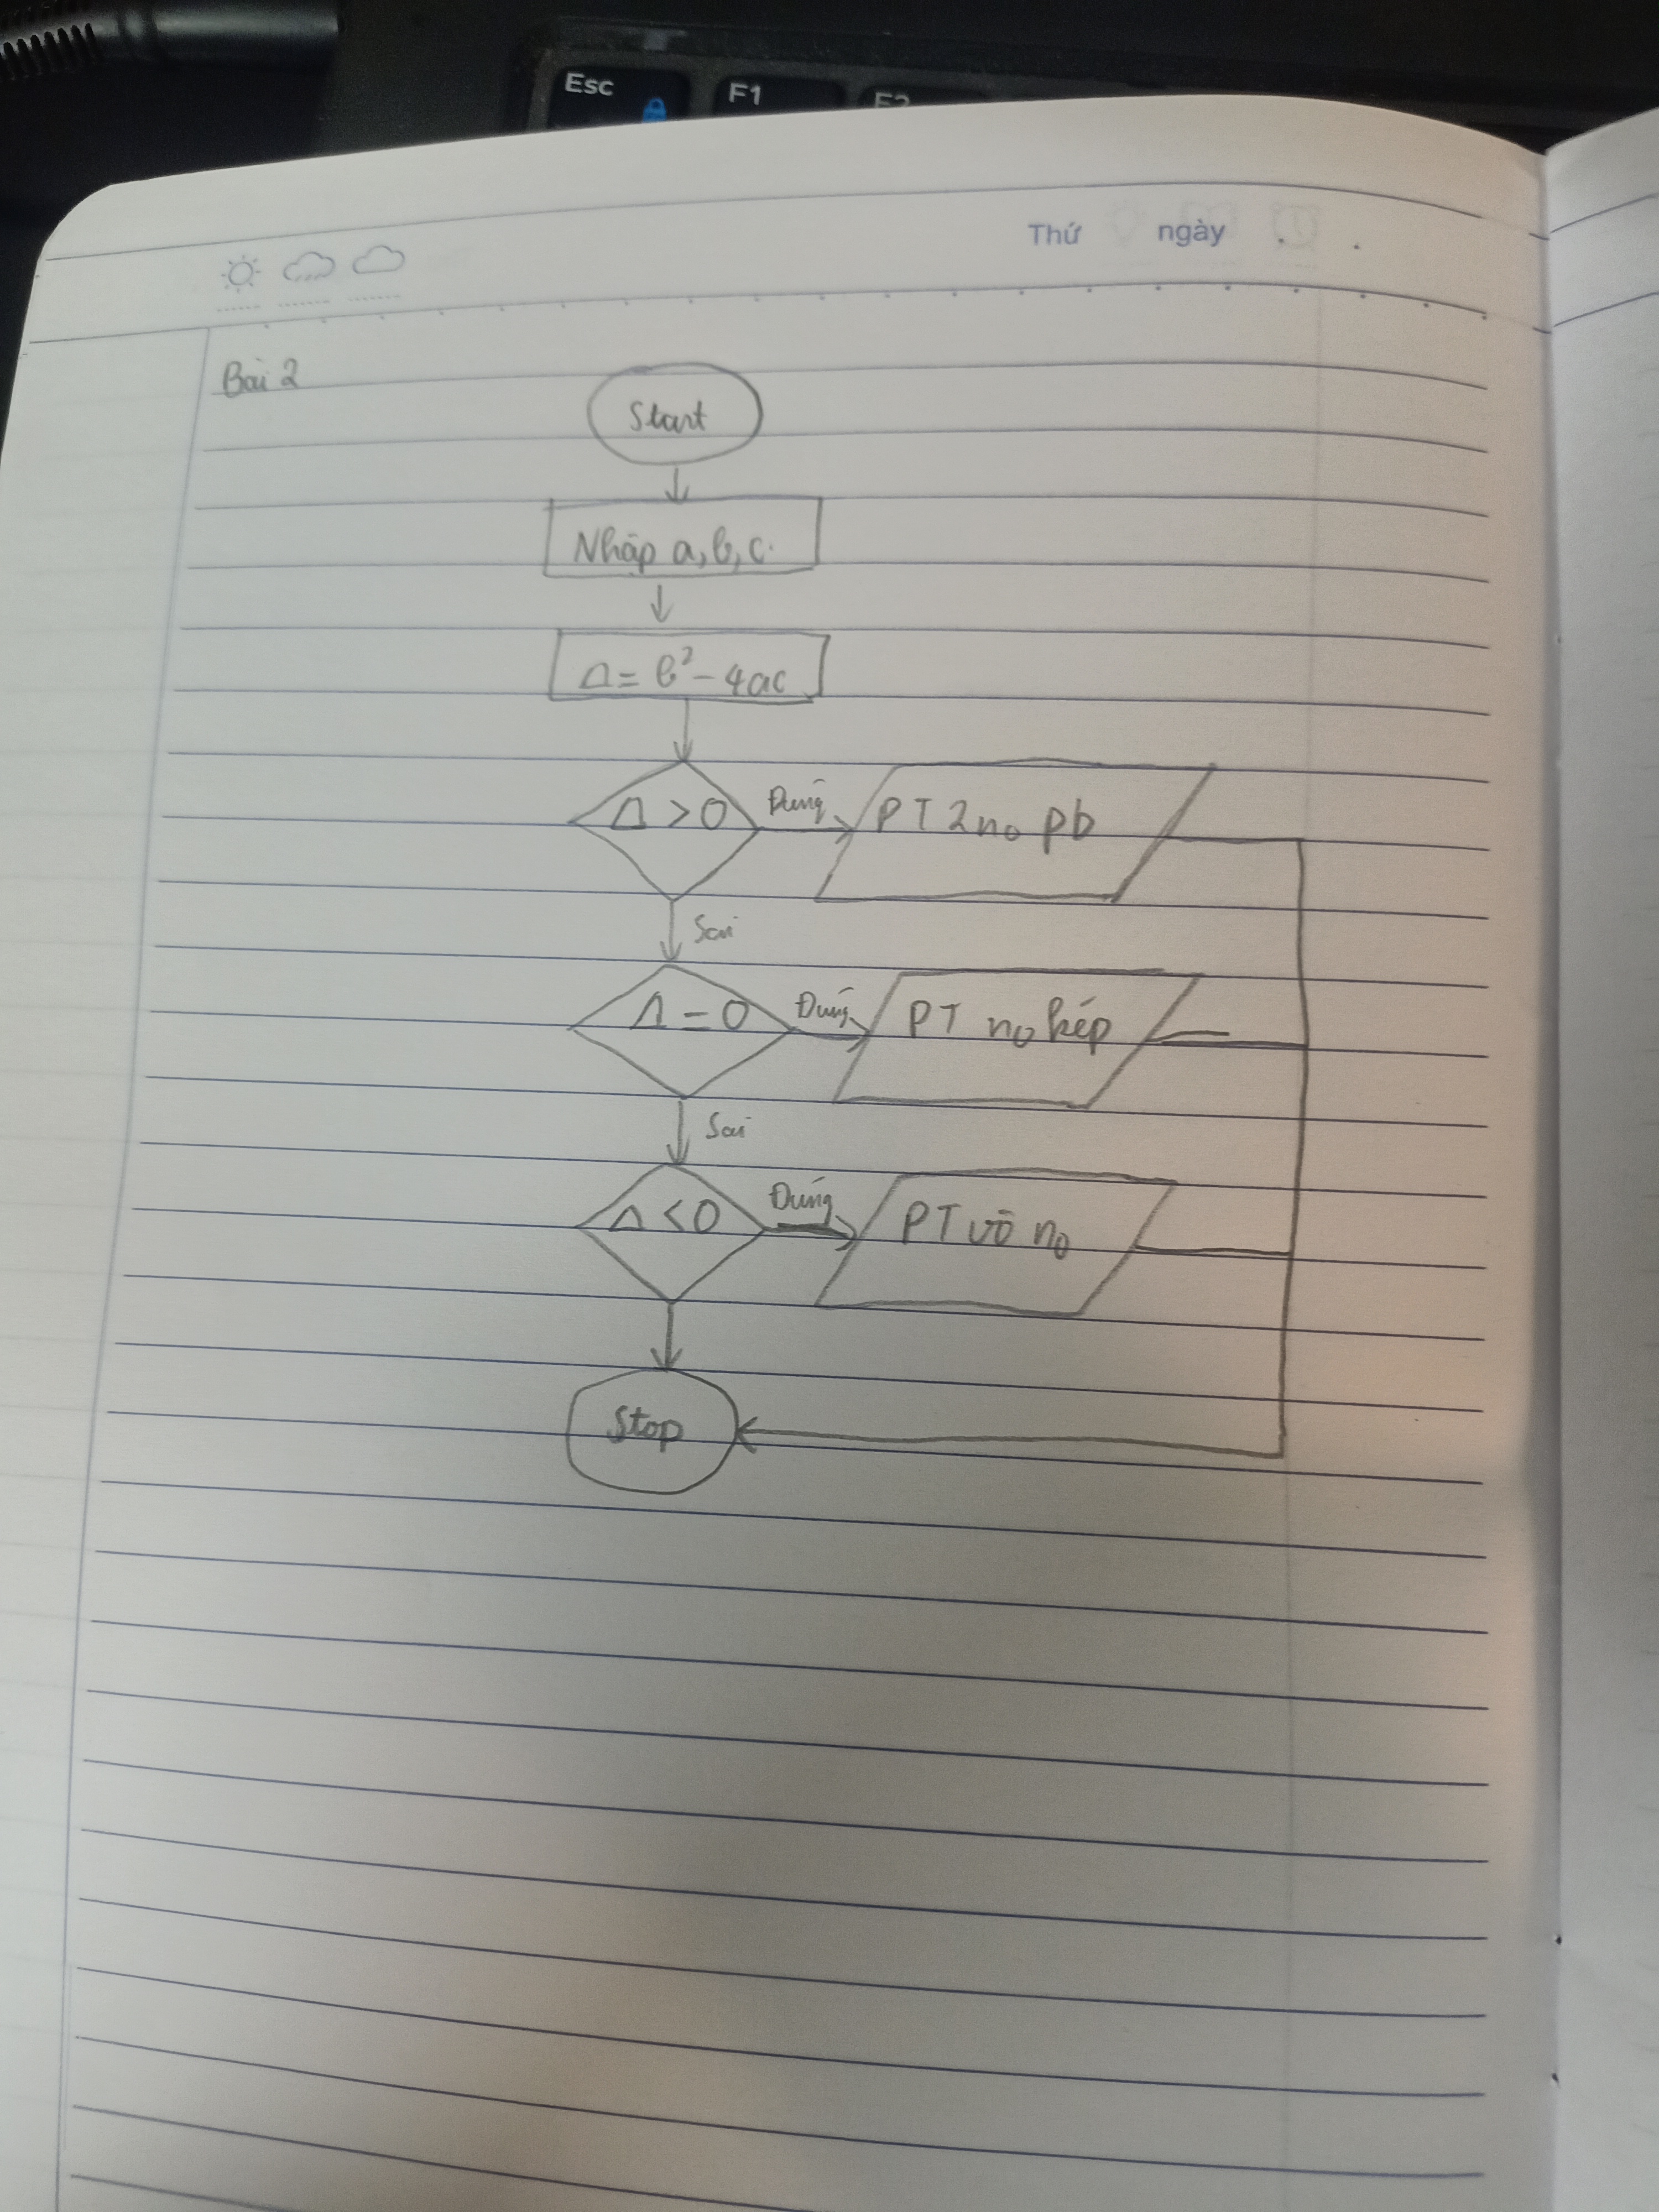 Esc F1 F2
Thứ ngày
Bài 2
Start
Nhập a, b, c.
Δ = b² - 4ac
Δ > 0 Đúng PT 2 no pb
Sai
Δ = 0 Đúng PT no kép
Sai
Δ < 0 Đúng PT vô no
Stop